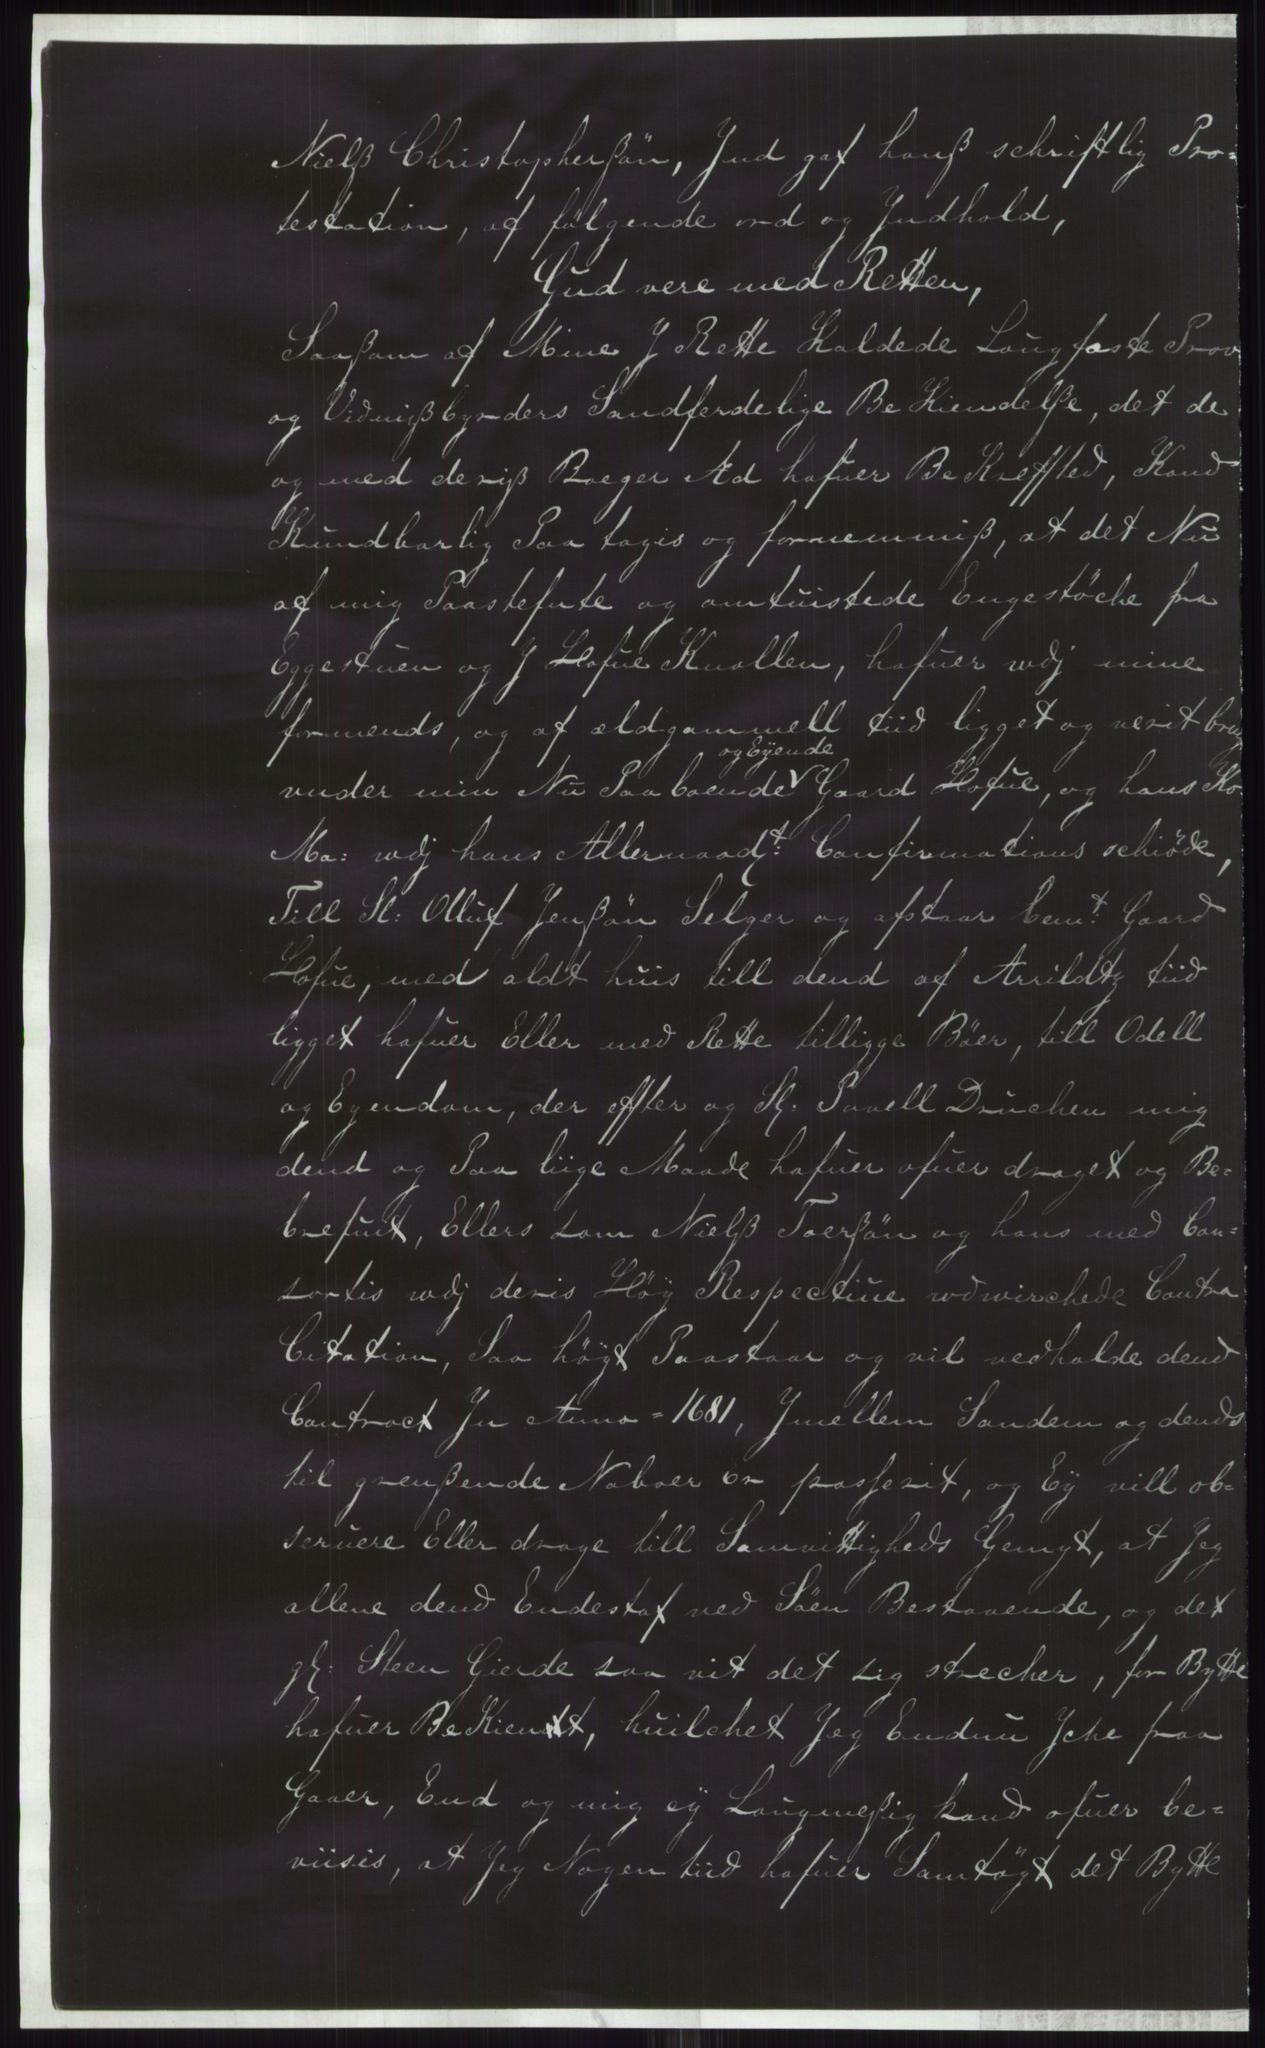 Nielß Christopherßön, Jnd gaf hanß schriftlig Pro=
testation, af følgende ord og Jndhold,
Gud vere med Retten,
Saaßom af Mine J Rette Kaldede Laugfaste Prov
og Vidnißbyrders Sandferdelige Be Kiendelße, det de
og med deriß Boeger Æd hafuer BeKreffted, Kand
Kundbarlig Paa tagis og fornemmiß, at det Nu
af mig Paastefnte og omtuistede Engestöche fra
Eggestuen og J Hofue Knollen, hafuer wdj mine
formends, og af ældgammell tiid ligget og verit brug
vnder min Nu Paaboende og Eÿende Gaard Hofue, og hans Ko
Ma: wdj hans Allernaadt: Confirmations schiöde,
Till Sl: Olluf Jenßön Selger og afstaar bemt: Gaard
Hofue, med aldt huis till dend af Arrildtz tiid
ligget hafuer Eller med Rette tilligge Böer, till Odell
og Eyendom, der effter og Sl: Povell Druchen mig
dend og Paa liige Maade hafuer ofuer draget og Be=
brefuit, Ellers som Nielß Toerßön og hans med Con=
sortis wdj deris Höÿ Respective wdwirchede Contra
Citation, Saa höÿt Paastaar og vil vedholde dend
Contract Jn Anno = 1681, Jmellem Sandem og dends
til grenßende Naboer er passerit, og Eÿ vill ob=
seruere Eller drage till Samvittigheds Gemÿt, at Jeg
allene dend Endestaf ved Söen Bestaaende, og det
gl: Steen Gierde saa vit det sig strecher, for Bytte
hafuer BeKiendt, huilchet Jeg Endnu Jche fraa
Gaaer, End og mig eÿ Laugmeßig kand ofuer be=
viisis, at Jeg Nogen tiid hafuer Samtÿgt det Bytte